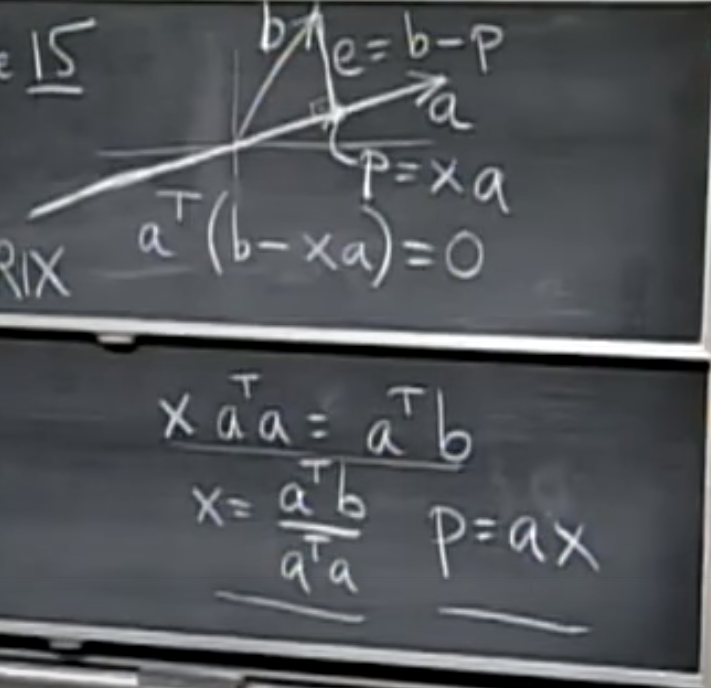 15
b e = b - p
a
p = xa
aᵀ(b - xa) = 0
x aᵀa = aᵀb
x = aᵀb / aᵀa p = ax